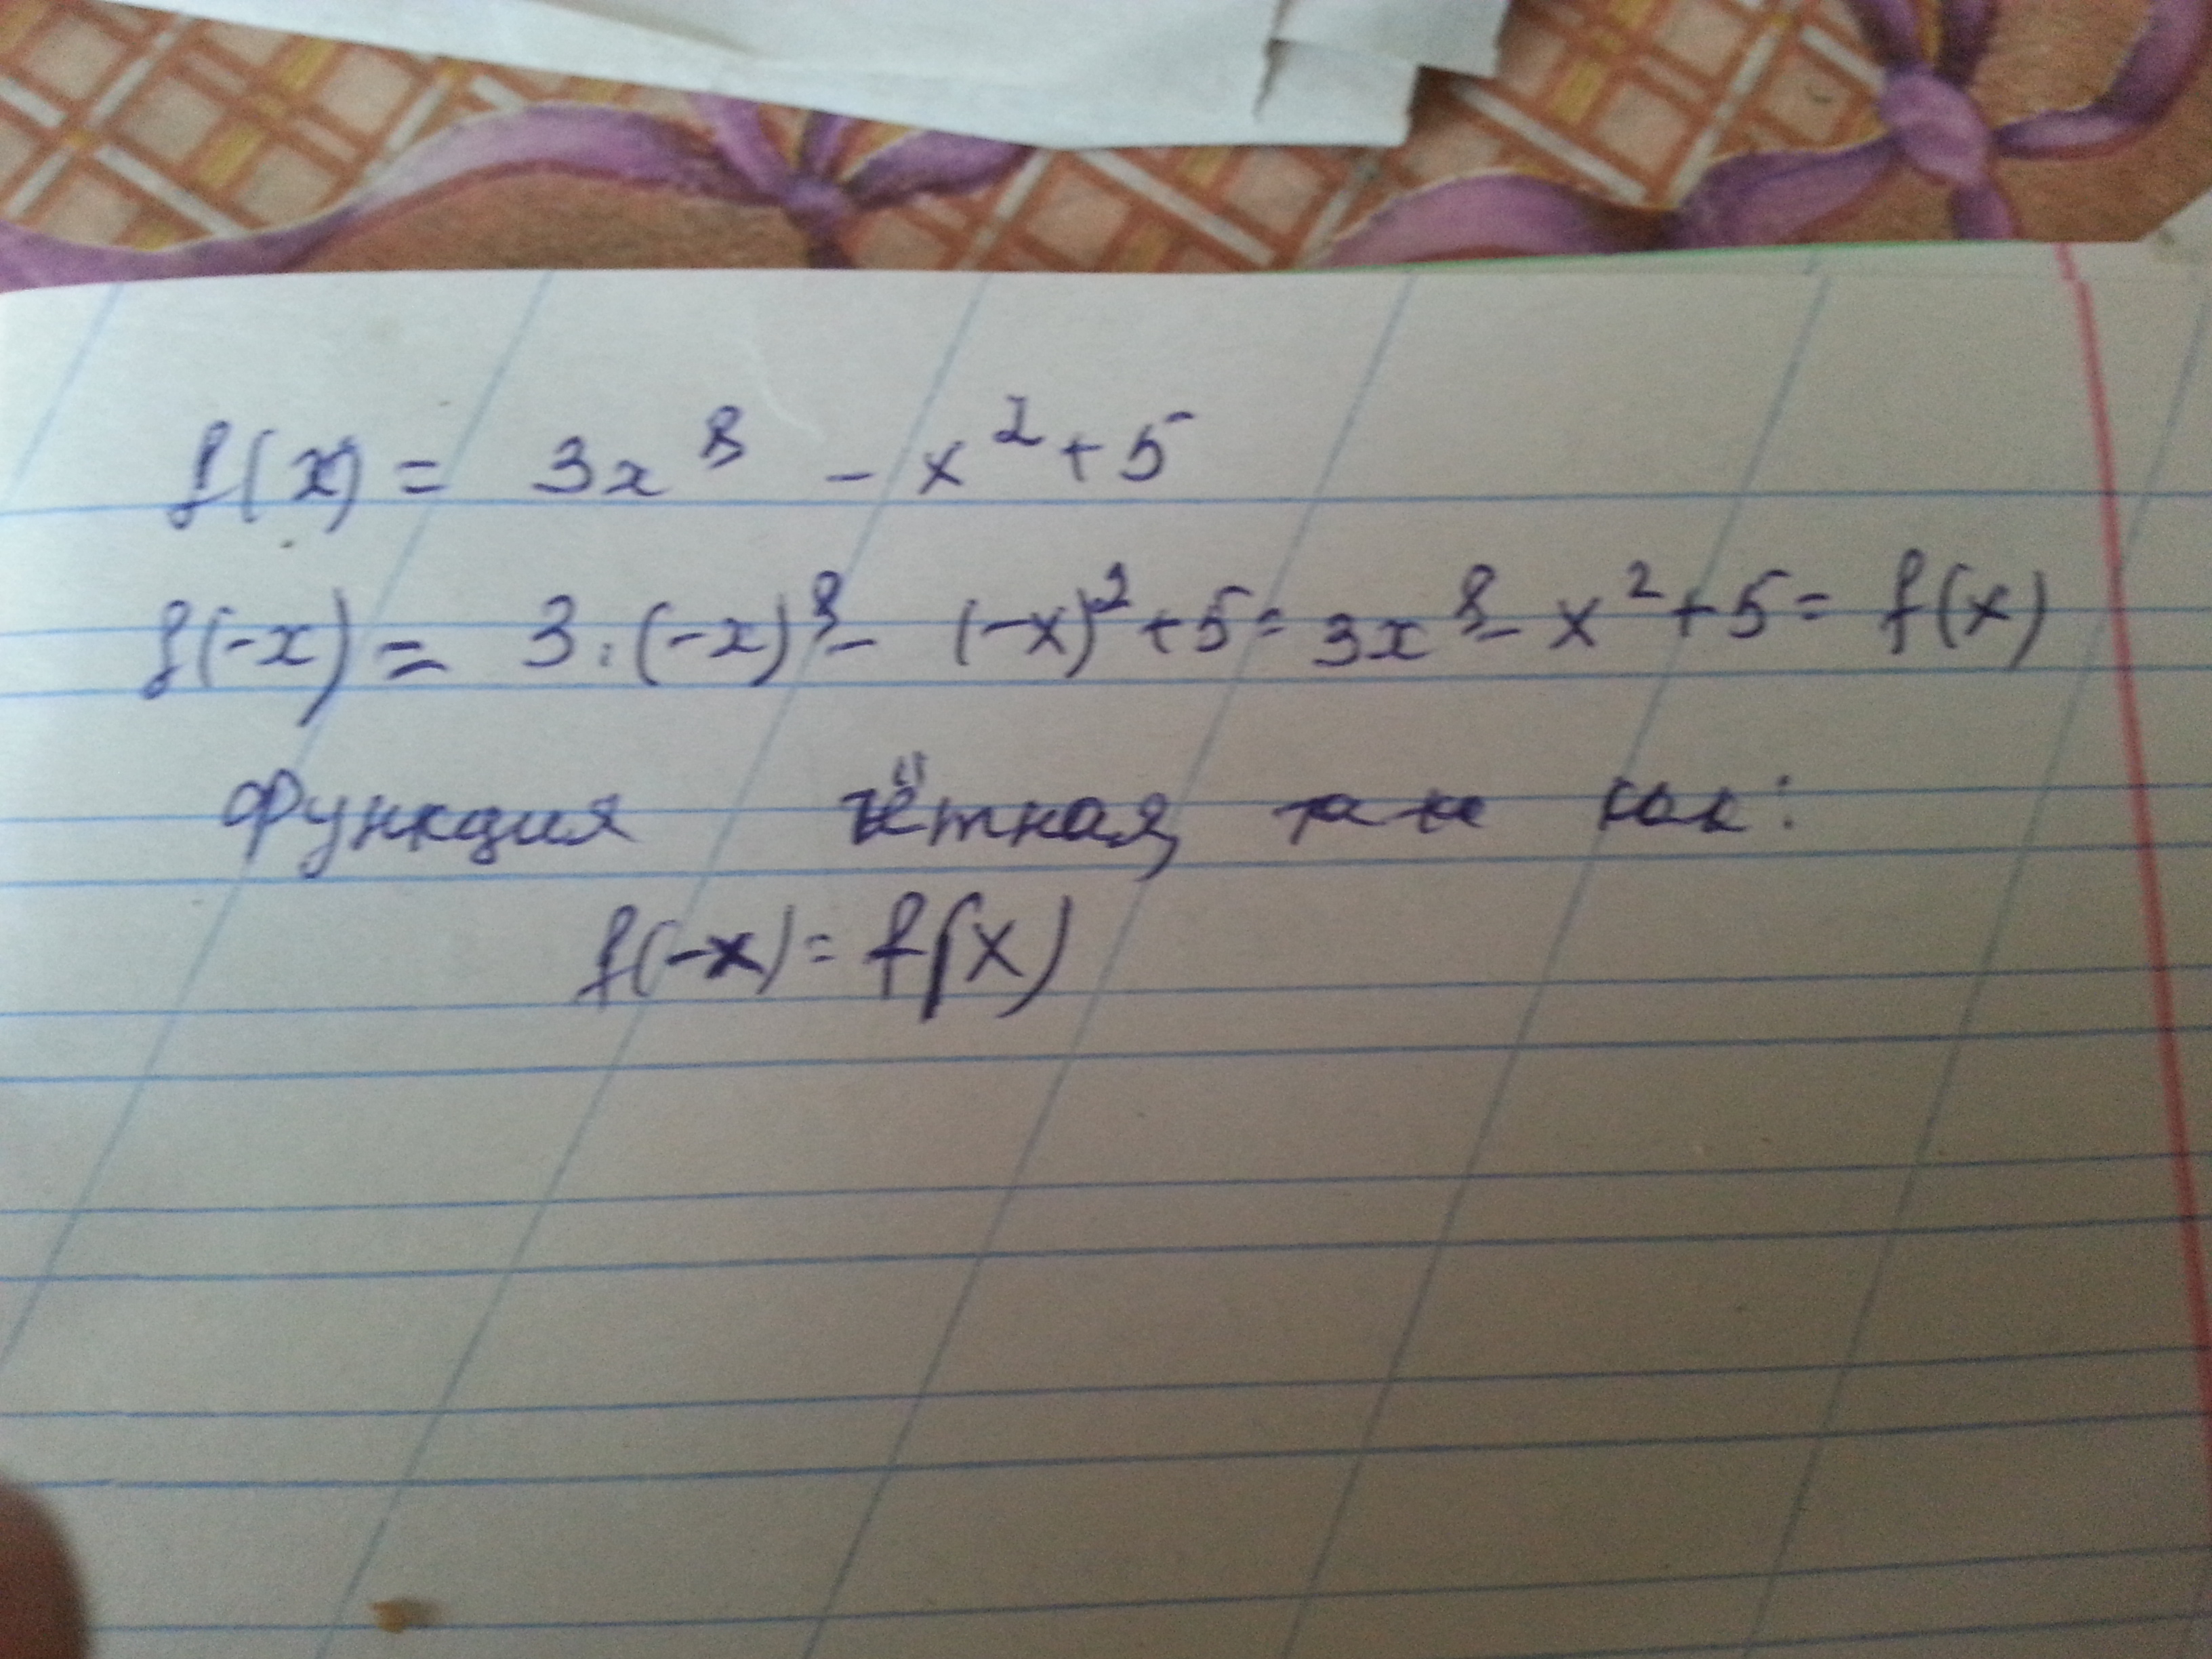 f(x) = 3x⁸ - x² + 5
f(-x) = 3·(-x)⁸ - (-x)² + 5 = 3x⁸ - x² + 5 = f(x)
Функция чётная, так как:
f(-x) = f(x)